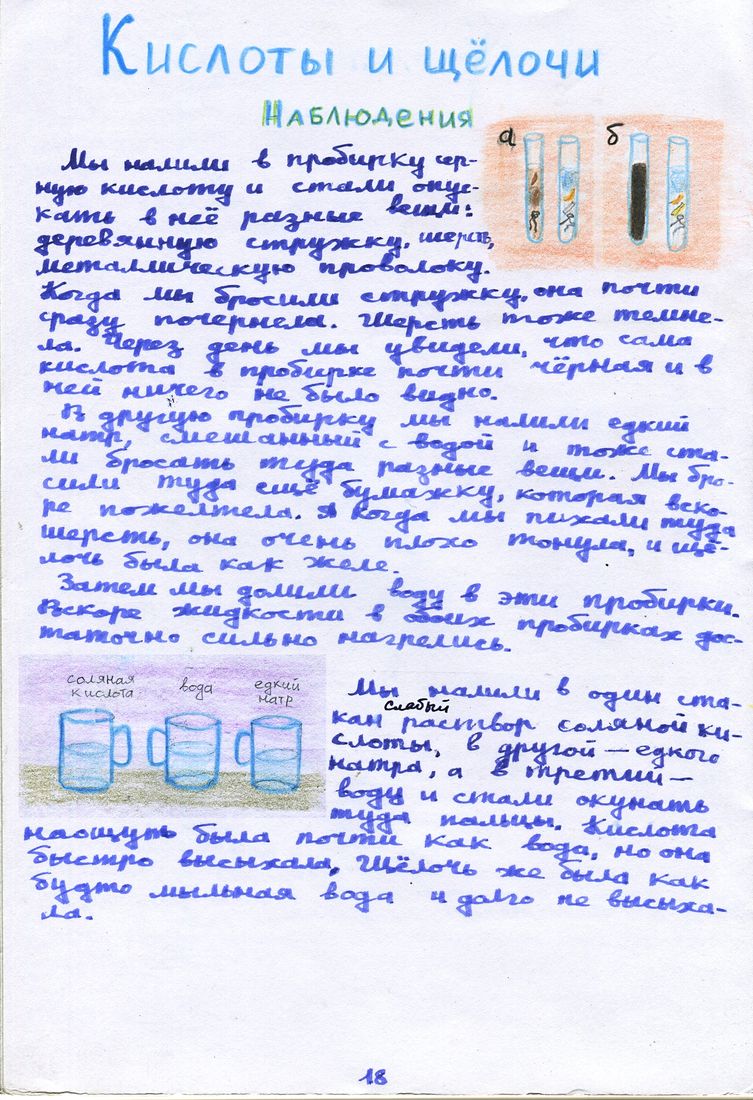 Кислоты и щёлочи
Наблюдения
а
б
Мы налили в пробирку сер-
ную кислоту и стали опус-
кать в неё разные вещи:
деревянную стружку, шерсть,
металлическую проволоку.
Когда мы бросили стружку, она почти
сразу почернела. Шерсть тоже темне-
ла. Через день мы увидели, что сама
кислота в пробирке почти чёрная и в
ней ничего не было видно.
В другую пробирку мы налили едкий
натр, смешанный с водой и тоже ста-
ли бросать туда разные вещи. Мы бро-
сили туда ещё бумажку, которая вско-
ре пожелтела. А когда мы пихали туда
шерсть, она очень плохо тонула, и щё-
лочь была как желе.
Затем мы долили воду в эти пробирки.
Вскоре жидкости в обоих пробирках дос-
таточно сильно нагрелись.
соляная
кислота
вода
едкий
натр
Мы налили в один ста-
кан слабый раствор соляной ки-
слоты, в другой — едкого
натра, а в третий —
воду и стали окунать
туда пальцы. Кислота
наощупь была почти как вода, но она
быстро высыхала. Щёлочь же была как
будто мыльная вода и долго не высыха-
ла.
18